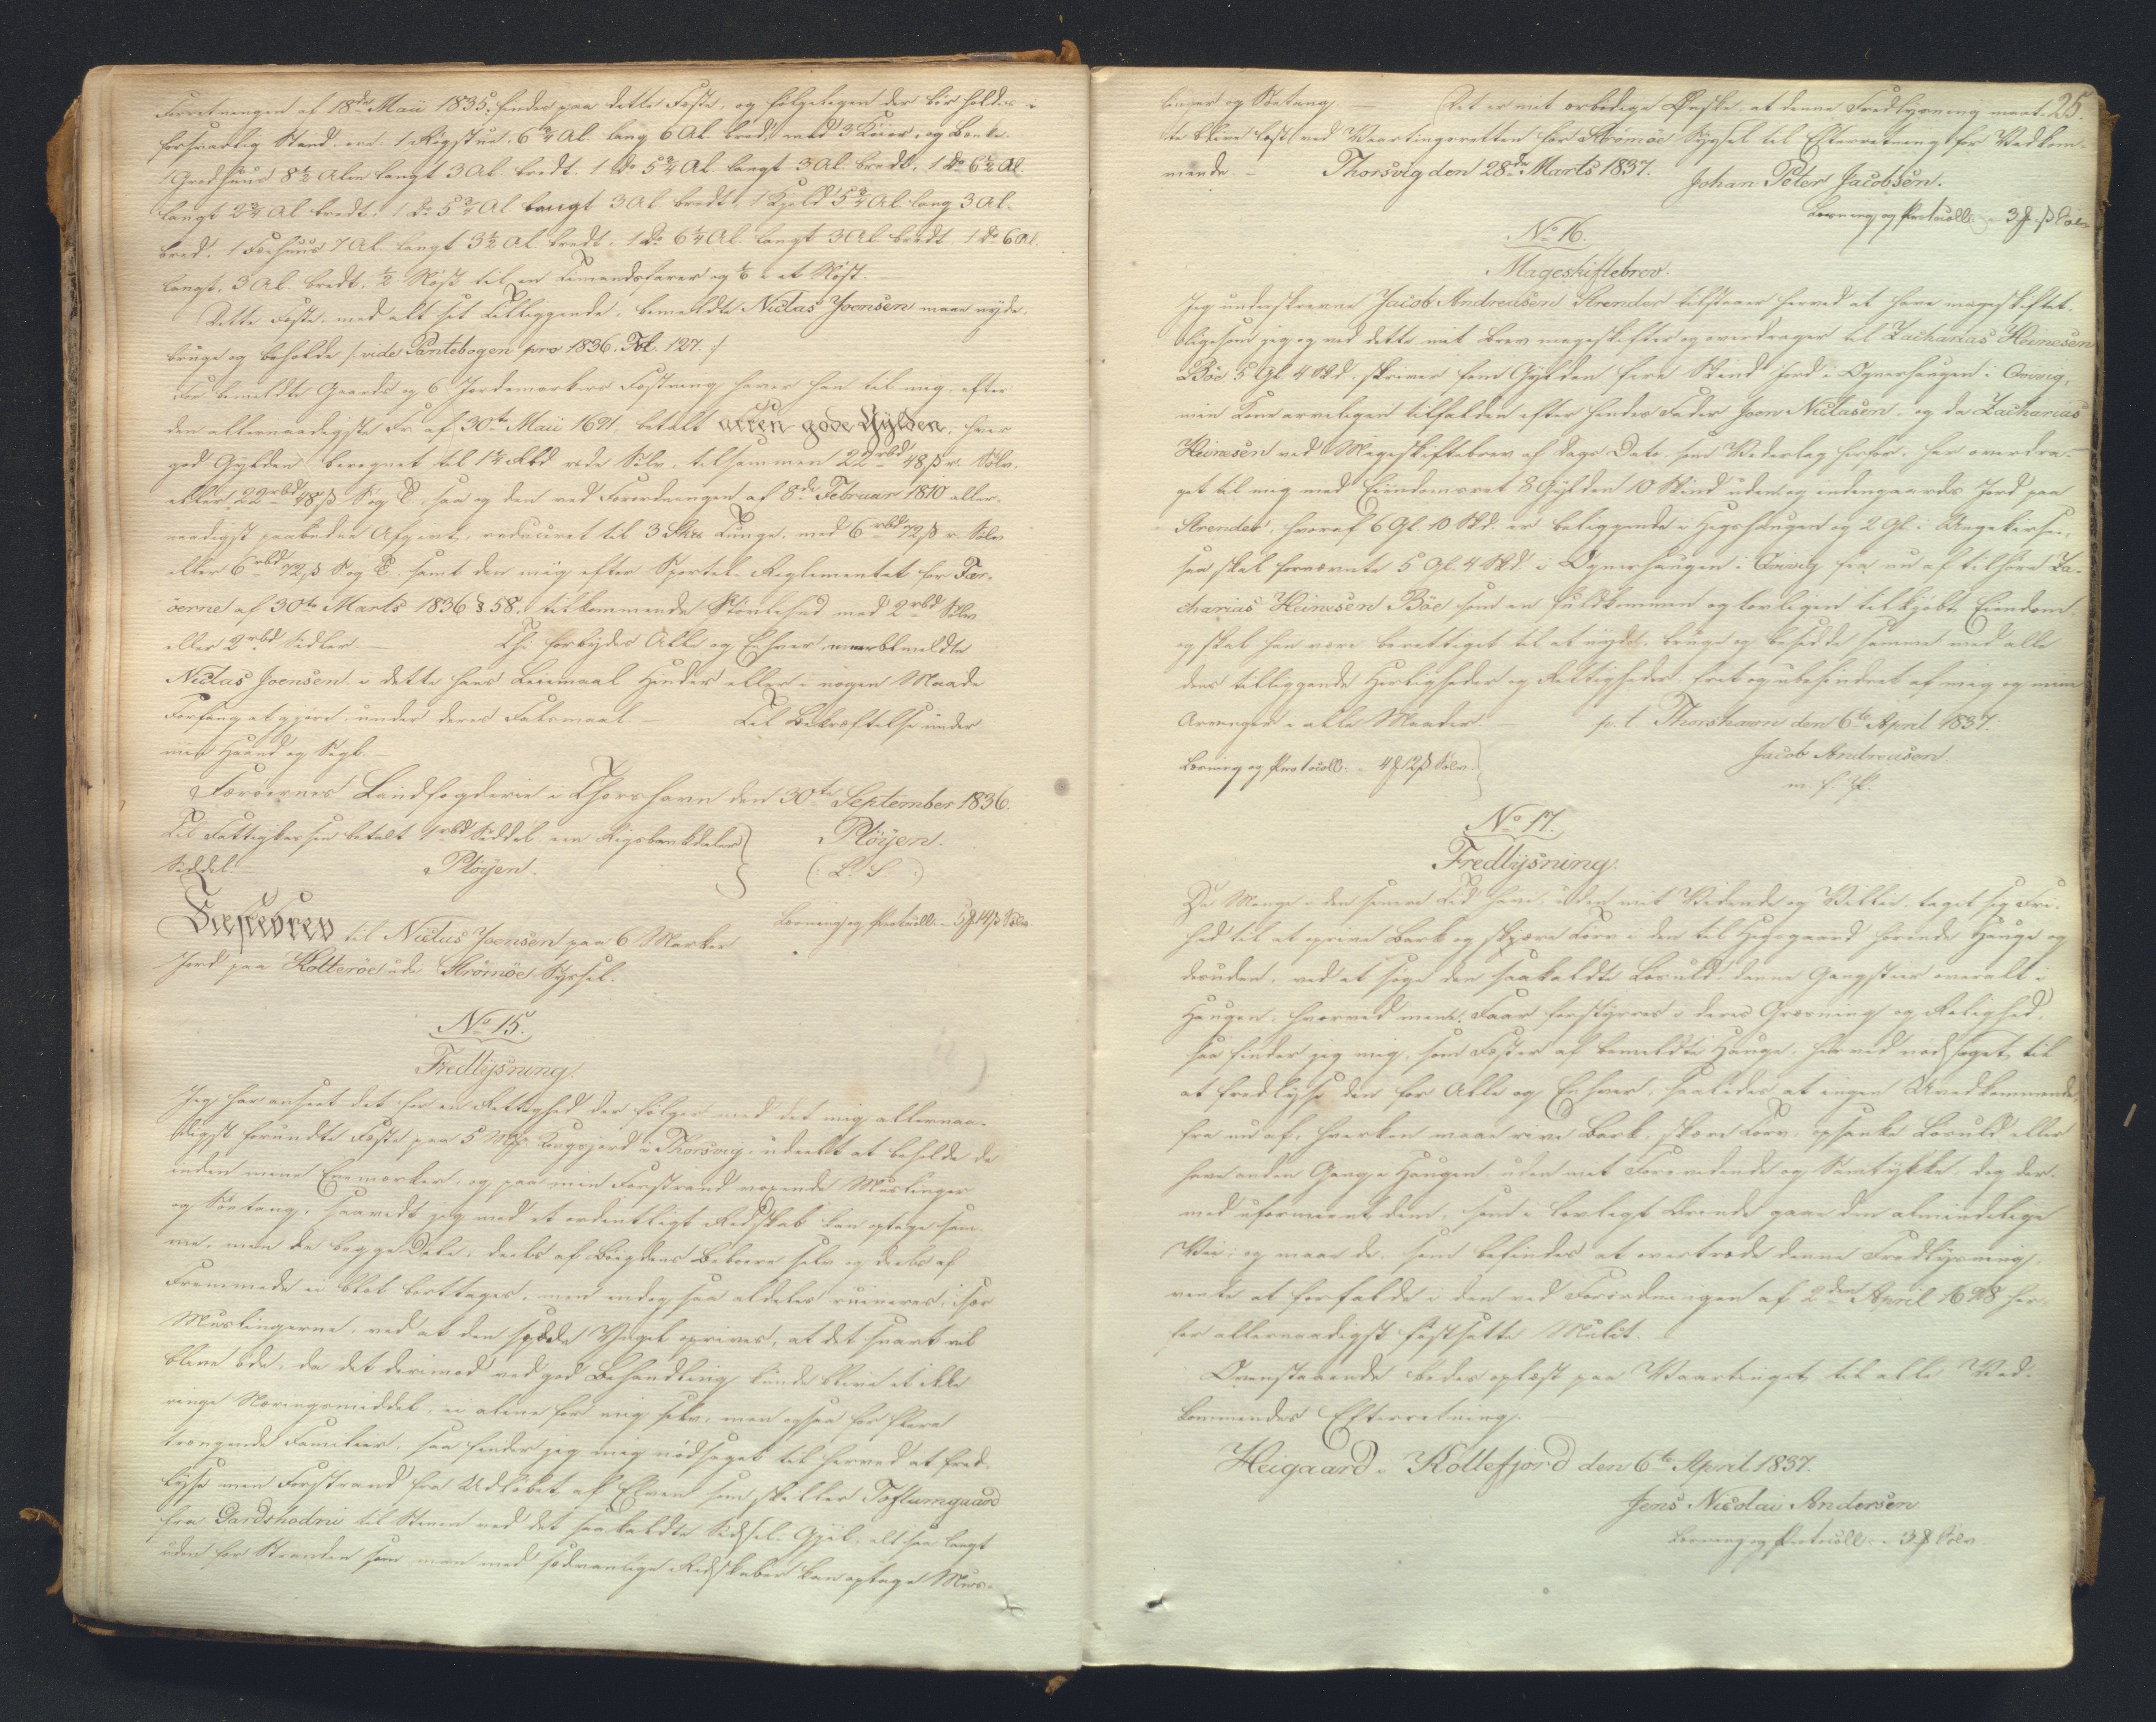 Forretningen af 18de Maii 1835, findes paa dette Fæste, og følgeligen der bør holdes i
forsvarlig Stand, er: 1 Røgstue, 6 3/4 Al. lang 6 Al. bred, med 3 Køier, og Bænke.
1 Grodhuus 8 1/2 Alen langt 3 Al. bredt. 1 do 5 3/4 Al. langt 3 Al. bredt. 1 do 6 1/2 Al.
langt 2 3/4 Al bredt. 1 do 5 3/4 Al langt 3 Al bredt, 1 Hjeld 5 3/4 Al. lang 3 Al.
bred. 1 Foehuus 7 Al. langt 3 1/2 Al. bredt. 1 do 6 1/4 Al. langt 3 Al bredt. 1 do 6 Al.
langt, 3 Al. bredt. 1/2 Nøst til en Timandsfarer og 1/6 i et Nøst.
Dette Fæste, med alt sit Tilliggende, bemeldte Niclas Joensen maae nyde,
bruge og beholde /: vide Pantebogen pro 1836. Fol. 127. :/
For bemeldte Gaards og 6 Jordemarkers Fæstning haver han til mig, efter
den allernaadigste Fr. af 30te Maii 1691, betalt atten gode Gylden, hver
god Gylden beregnet til 1 1/4 Rbd rede Sølv, tilsammen 22 rbd 48 β r. Sølv,
eller 22 rbd 48 β S. og T., saa og den ved Forordningen af 8de Februar 1810 aller-
naadigst paabudne Afgivt, reduceret til 3 Skr. Tønge, med 6 rbd 72 β r. Sølv
eller 6 rbd 72 β S. og T. samt den mig efter Sportel-Reglementet for Fær-
öerne af 30te Marts 1836 § 58, tilkommende Støvlehud med 2 rbd Sølv
eller 2 rbd Sedler. – Thi forbydes Alle og Enhver, meerbemeldte
Niclas Joensen i dette hans Leiemaal Hinder eller i nogen Maade
Forfang at gjøre, under deres Faldsmaal – Til Bekræftelse under
min Haand og Segl. –
Færöernes Landfogderie i Thorshavn den 30te September 1836.
Til Fattigkassen betalt 1 rbd Seddel, een Rigsbankdaler Plöyen.
Seddel. Plöyen. (: L. S. :)
Fæstebrev til Niclas Joensen paa 6 Marker Læsning og Protocoll: – 5 ℳ 14 β Sølv
Jord paa Kolteröe udi Strömöe Syssel.
No 15.
Fredlysning.
Jeg har anseet det for en Rettighed der følger med det mig allernaa-
digst forundte Fæste paa 5 Mk: Kongsjord i Thorsvig, udeelt at beholde de
inden mine Enemærker, og paa min Forstrand voxende Muslinger
og Söetang, saavidt jeg med et ordentligt Redskab kan optage sam-
me, men da begge Dele, deels af Bøigdens Beboere selv og deels af
Fremmede ei blot borttages, men endog saa aldeles ruineres, især
Muslingerne, ved at den spæde Yngel oprives, at det snart vil
blive øde, da det derimod ved god Behandling kunde blive et ikke
ringe Næringsmiddel, ei alene for mig selv, men ogsaa for flere
trængende Familier, saa finder jeg mig nødsaget til herved at fred-
lyse min Forstrand fra Udløbet af Elven som skiller Toftumgaard
fra Gardshodnu til Stenen ved det saakaldte Gjil, alt saa langt
uden for Stranden som man med sædvanlige Redskaber kan optage Mus-
25.
linger og Söetang. – Det er mit ærbødige Ønske, at denne Fredlysning maat-
te blive læst ved Vaartingsretten for Strömöe Syssel til Efterretning for Vedkom-
mende. – Thorsvig den 28de Marts 1837. Johan Peter Jacobsen.
Læsning og Protocoll: – 3 ℳ β Sølv
No 16.
Mageskiftebrev.
Jeg underskrevne Jacob Andreasen Strender tilstaaer herved at have mageskiftet,
ligesom jeg og ved dette mit Brev mageskifter og overdrager til Zacharias Heinesen
Böe 5 Gl. 4 Skd. skriver fem Gylden fire Skind Jord i Ognerhaugen i Qvivig,
min Kone arveligen tilfalden efter hendes Fader Joen Niclasen, og da Zacharias
Heinesen ved Mageskiftebrev af Dags Dato, som Vederlag herfor, har overdra-
get til mig med Eiendomsret 8 Gylden 10 Skind uden og indengaards Jord paa
Strender, hvoraf 6 Gl. 10 Skd. er beliggende i Hegshaugen og 2 Gl. i Ungekersei,
saa skal fornævnte 5 Gl. 4 Skd. i Ognerhaugen i Qvivig fra nu af tilhøre Za-
charias Heinesen Böe som en fuldkommen og lovligen tilkjøbt Eiendom,
og skal han være berettiget til at nyde, bruge og besidde samme med alle
dens tilliggende Herligheder og Rettigheder, frit og ubehindret af mig og mine
Arvinger i alle Maader. p. t. Thorshavn den 6te April 1837.
Læsning og Protocoll: – 4 ℳ 12 β Sølv. Jacob Andreasen
m. f. P.
No 17.
Fredlysning.
Da Mange i den senere Tid have, uden mit Vidende og Villie, taget sig Fri-
hed til at oprive Bark og skjære Torv i den til Heigaard hørende Hauge og
desuden, ved at søge den saakaldte Løsuld danne Gangstier overalt i
Haugen, hvorved mine Faar forstyrres i deres Græsning og Rolighed,
saa finder jeg mig, som Fæster af bemeldte Hauge, herved nødsaget til
at fredlyse den for Alle og Enhver, saaledes at ingen Uvedkommende,
fra nu af, hverken maae rive Bark, skære Torv, opsanke Løsuld eller
have anden Gang i Haugen uden mit Forevidende og Samtykke, dog der-
med uformeent dem, som i lovligt Ærende gaae den almindelige
Vei; og maae de, som befindes at overtræde denne Fredlysning,
vente at forfalde i den ved Forordningen af 2den April 1698 her-
for allernaadigst fastsatte Mulct.
Ovenstaaende bedes oplæst paa Vaartinget til alle Ved-
kommendes Efterretning.
Heigaard i Kollefjord den 6te April 1837.
Jens Nicolai Andersen
Læsning og Protocoll – 3 ℳ Sølv